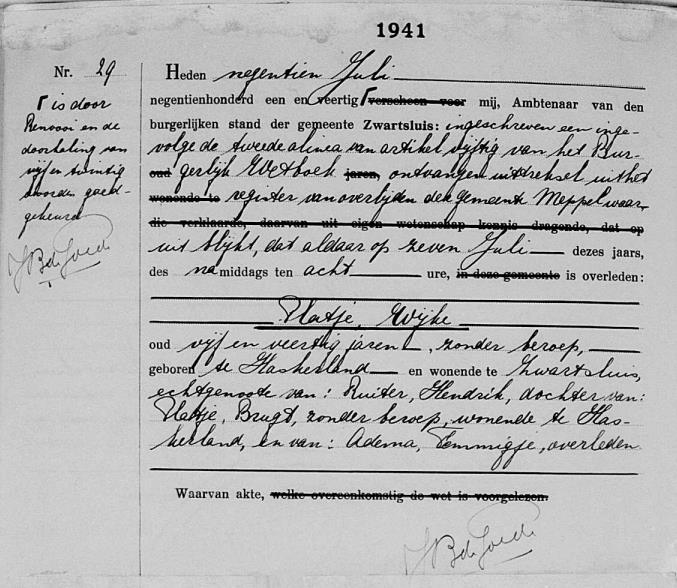 1941
Nr. 29
Γ is door
Renvooi en de
doorhaling van
vijf en twintig
woorden goed-
gekeurd
JBdeGoede
Heden negentien Juli
negentienhonderd een en veertig Γ verscheen voor mij, Ambtenaar van den
burgerlijken stand der gemeente Zwartsluis: ingeschreven een inge-
volge de tweede alinea van artikel vijftig van het Bur-
oud gerlijk Wetboek jaren, ontvangen uittreksel uit het
wonende te register van overlijden der gemeente Meppel waar-
die verklaarde, daarvan uit eigen wetenschap kennis dragende, dat op
uit blijkt, dat aldaar op zeven Juli dezes jaars,
des namiddags ten acht ure, in deze gemeente is overleden:
Platje, Wijke
oud vijf en veertig jaren, zonder beroep,
geboren te Haskerland en wonende te Zwartsluis,
echtgenoote van: Ruiter, Hendrik, dochter van:
Platje, Brugt, zonder beroep, wonende te Has-
kerland, en van: Adema, Temmigje, overleden
Waarvan akte, welke overeenkomstig de wet is voorgelezen.
JBdeGoede